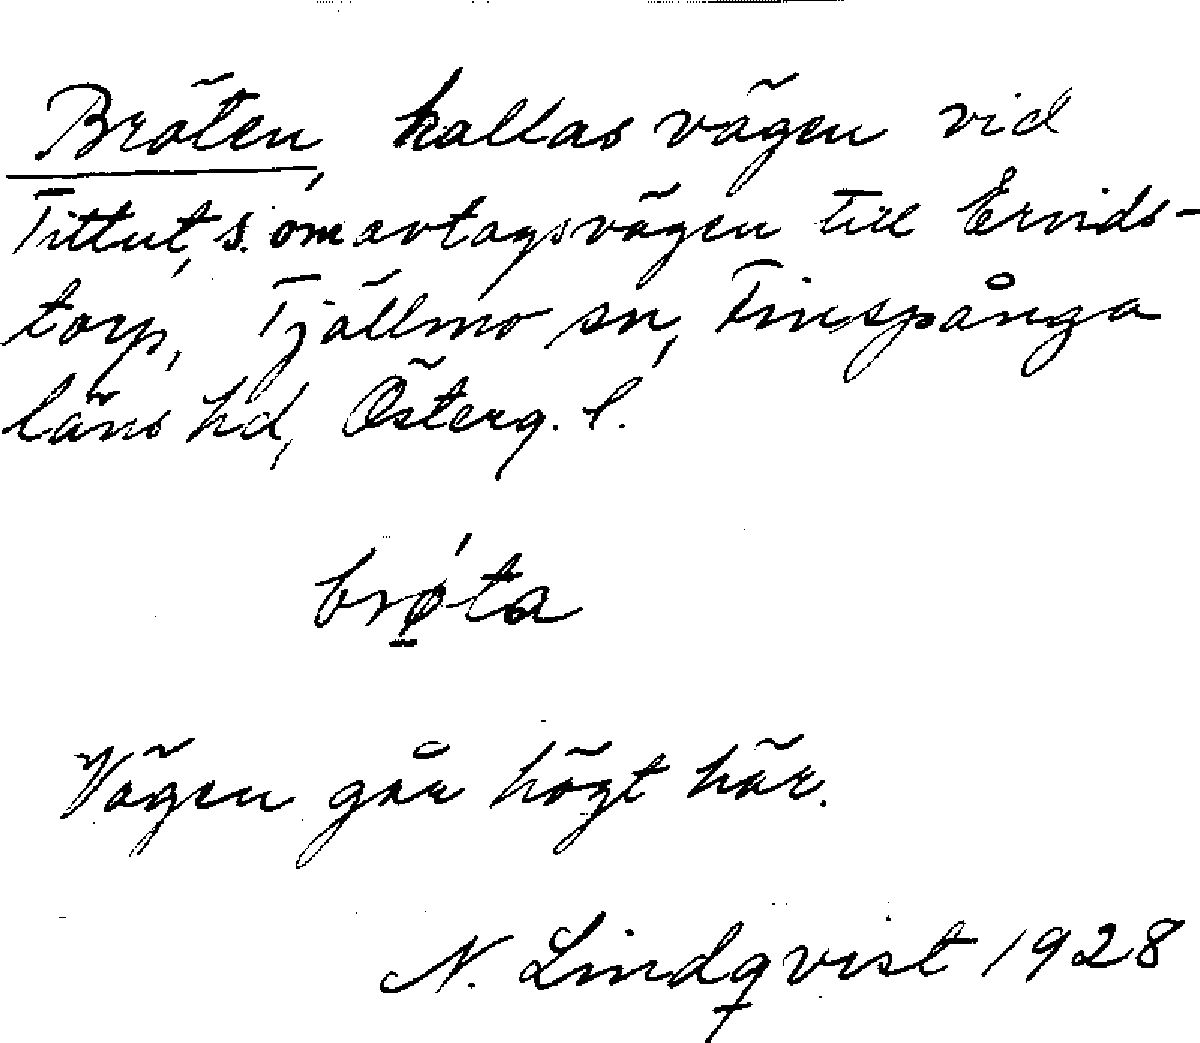 Bröten, kallas vägen vid
Tittut, s. om avtagsvägen till Ervids-
torp, Tjällmo sn, Finspånga
läns hd, Österg. l.
brø̱´ta
Vägen går högt här.
N. Lindqvist 1928